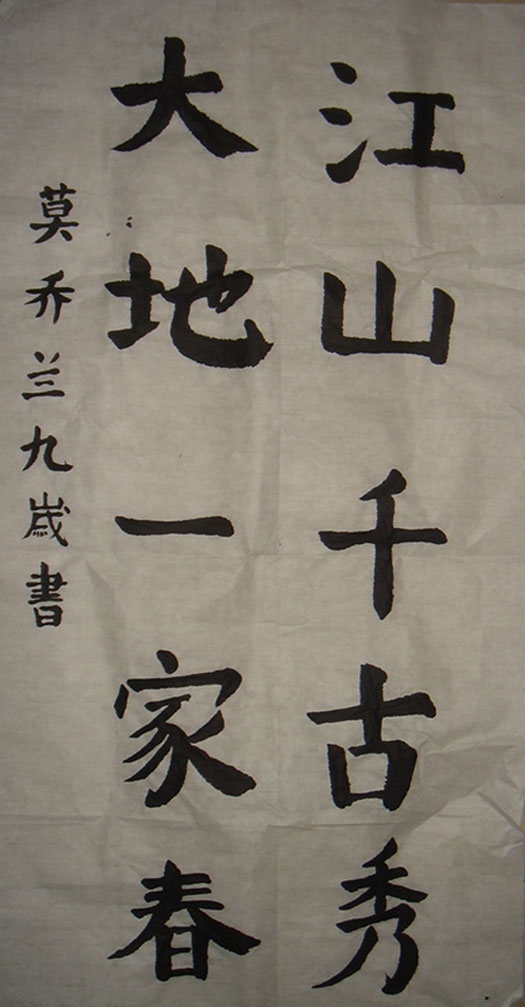 江山千古秀
大地一家春
莫乔兰九歲書